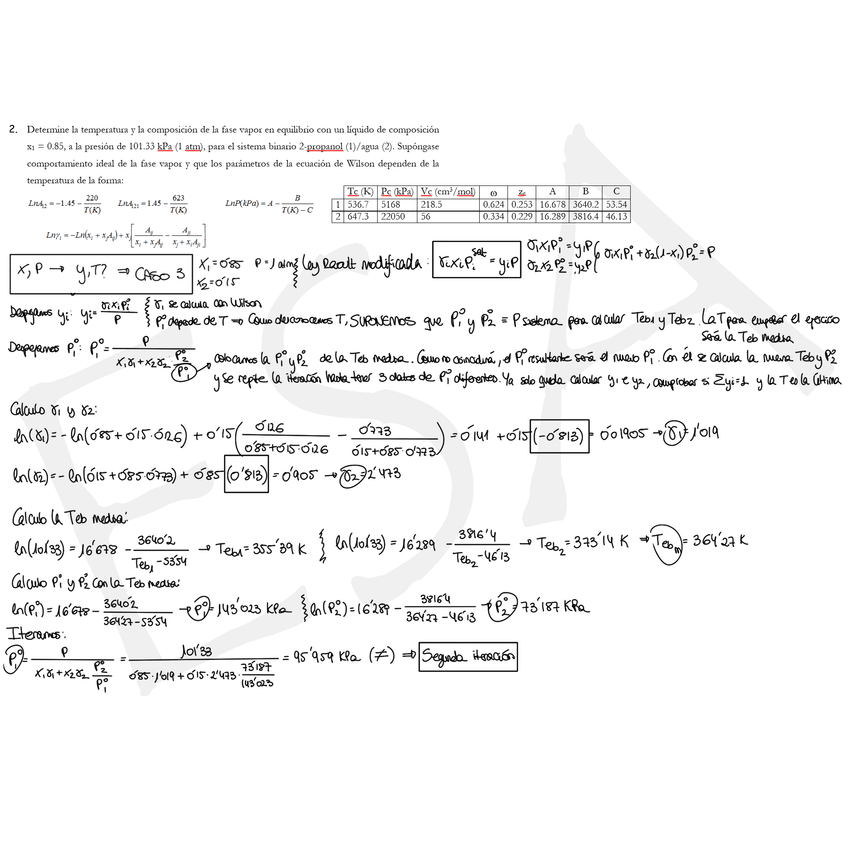 2. Determine la temperatura y la composición de la fase vapor en equilibrio con un líquido de composición
x₁ = 0.85, a la presión de 101.33 kPa (1 atm), para el sistema binario 2-propanol (1)/agua (2). Supóngase
comportamiento ideal de la fase vapor y que los parámetros de la ecuación de Wilson dependen de la
temperatura de la forma:
LnA₁₂ = −1.45 − 220/T(K) LnA₂₁ = 1.45 − 623/T(K) LnP(kPa) = A − B/(T(K) − C)
Tc (K) Pc (kPa) Vc (cm³/mol) ω zc A B C
1 536.7 5168 218.5 0.624 0.253 16.678 3640.2 53.54
2 647.3 22050 56 0.334 0.229 16.289 3816.4 46.13
Lnγᵢ = −Ln(xᵢ + xⱼAᵢⱼ) + xⱼ[Aᵢⱼ/(xᵢ + xⱼAᵢⱼ) − Aⱼᵢ/(xⱼ + xᵢAⱼᵢ)]
X, P → y, T? ⇒ CASO 3
X₁ = 0'85 P = 1 atm
X₂ = 0'15
Ley Raoult modificada: γᵢXᵢPᵢ^sat = yᵢP
γ₁X₁P₁° = y₁P
γ₂X₂P₂° = y₂P
γ₁X₁P₁° + γ₂(1-X₁)P₂° = P
Despejamos yᵢ: yᵢ = γᵢXᵢPᵢ°/P
γᵢ se calcula con Wilson
Pᵢ° depende de T ⇒ Como desconocemos T, SUPONEMOS que P₁° y P₂° = P sistema para calcular Teb1 y Teb2. La T para empezar el ejercicio
será la Teb media
Despejamos P₁°: P₁° = P/(X₁γ₁ + X₂γ₂ P₂°/P₁°)
Colocamos la P₁° y P₂° de la Teb media. Como no coincidirá, el P₁° resultante será el nuevo P₁°. Con él se calcula la nueva Teb y P₂°
y se repite la iteración hasta tener 3 datos de P₁° diferentes. Ya solo queda calcular y₁ e y₂, comprobar si Σyi=1 y la T es la última
Calculo γ₁ y γ₂:
ln(γ₁) = −ln(0'85 + 0'15·0'126) + 0'15(0'126/(0'85+0'15·0'126) − 0'773/(0'15+0'85·0'773)) = 0'141 + 0'15(−0'813) = 0'01905 → γ₁ = 1'019
ln(γ₂) = −ln(0'15 + 0'85·0'773) + 0'85(0'813) = 0'905 → γ₂ = 2'473
Calculo la Teb media:
ln(101'33) = 16'678 − 3640'2/(Teb₁ − 53'54) → Teb₁ = 355'39 K
ln(101'33) = 16'289 − 3816'4/(Teb₂ − 46'13) → Teb₂ = 373'14 K ⇒ Teb m = 364'27 K
Calculo P₁° y P₂° con la Teb media:
ln(P₁°) = 16'678 − 3640'2/(364'27 − 53'54) → P₁° = 143'023 kPa
ln(P₂°) = 16'289 − 3816'4/(364'27 − 46'13) → P₂° = 73'187 KPa
Iteramos:
P₁° = P/(X₁γ₁ + X₂γ₂ P₂°/P₁°) = 101'33/(0'85·1'019 + 0'15·2'473·73'187/143'023) = 95'959 kPa (≠) ⇒ Segunda iteración